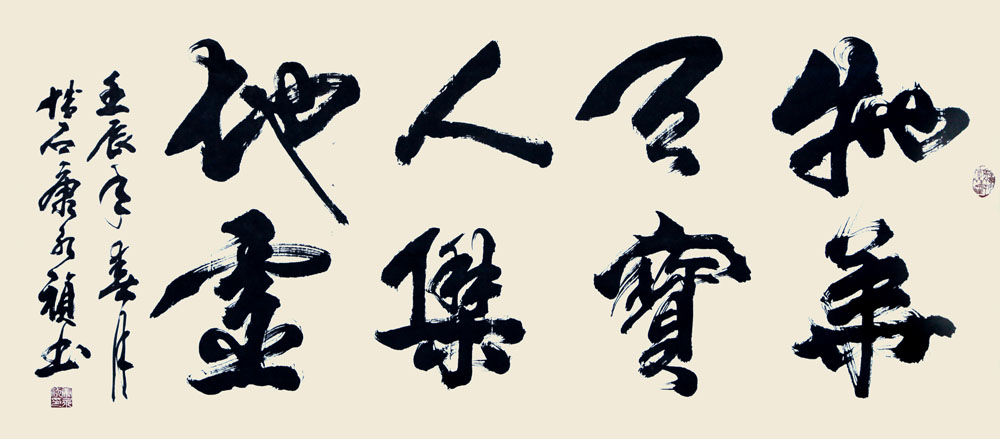 物華
天寶
人傑
地靈
壬辰年春月
石康永禎书